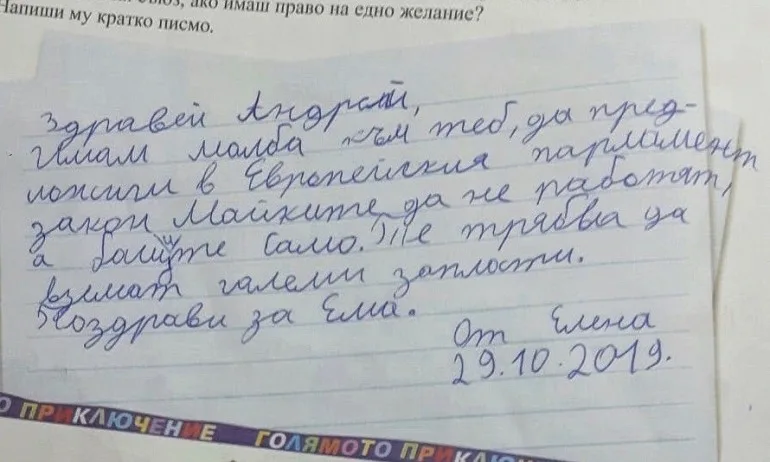 ако имаш право на едно желание?
Напиши му кратко писмо.
Здравей Андрей,
Имам молба към теб, да пред-
ложиш в Европейския парламент
закон Майките да не работят,
а бащите само. Те трябва да
взимат галеми заплости.
Поздрави за Ема.
От Елена
29.10.2019.
О ПРИКЛЮЧЕНИЕ ГОЛЯМОТО ПРИКЛЮЧ